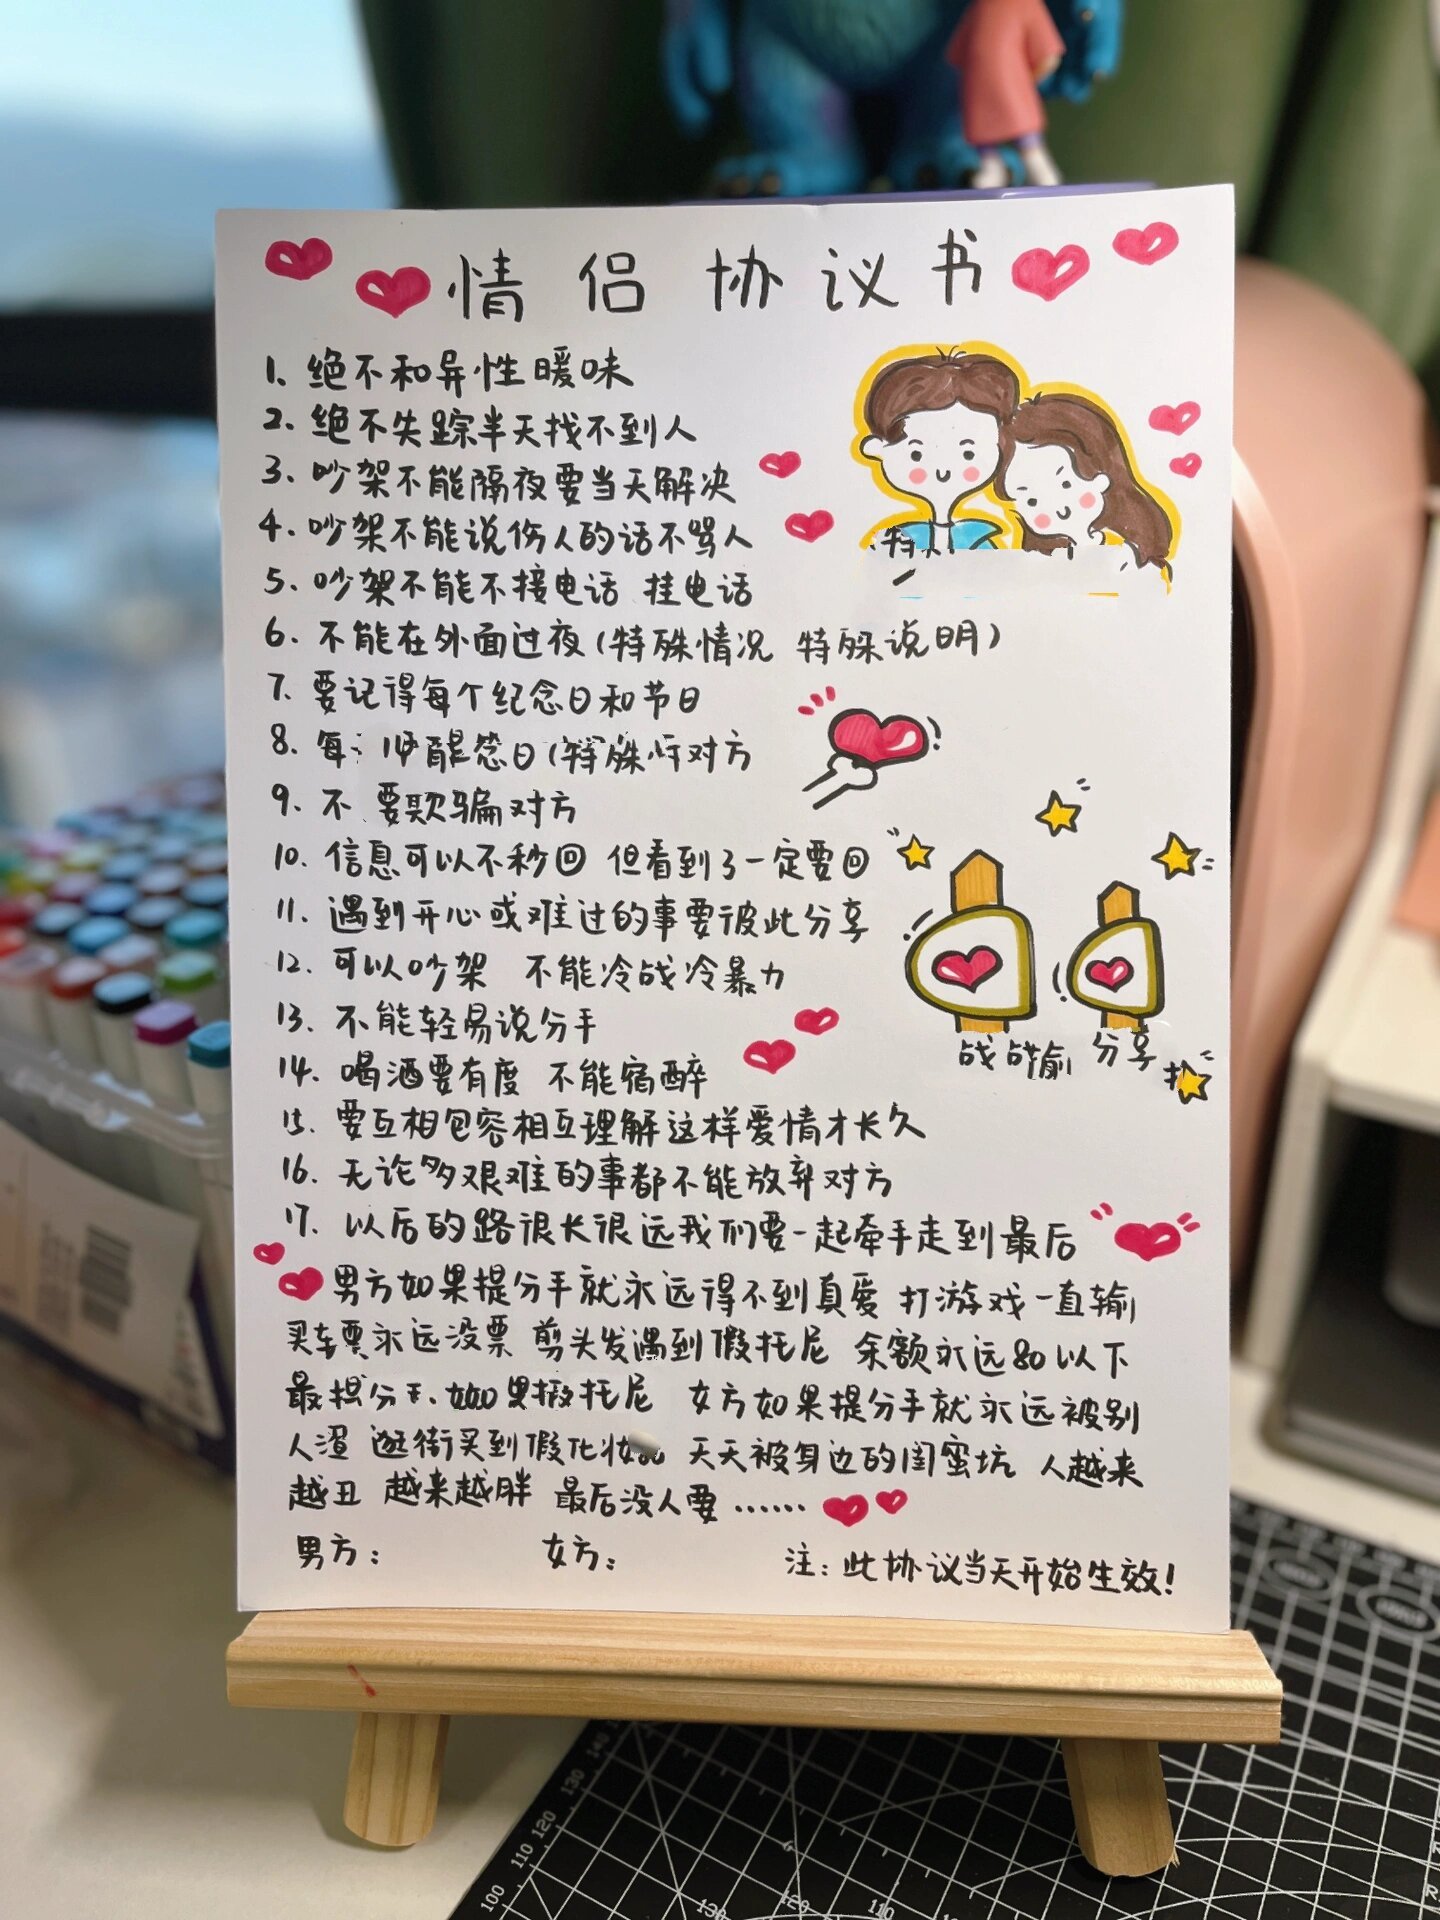 情侣协议书
1、绝不和异性暧味
2、绝不失踪半天找不到人
3、吵架不能隔夜要当天解决
4、吵架不能说伤人的话不骂人
5、吵架不能不接电话 挂电话
6、不能在外面过夜(特殊情况 特殊说明)
7、要记得每个纪念日和节日
8、每 念日(特殊 对方
9、不 要欺骗对方
10、信息可以不秒回 但看到了一定要回
11、遇到开心或难过的事要彼此分享
12、可以吵架 不能冷战冷暴力
13、不能轻易说分手
战 输 分享
14、喝酒要有度 不能宿醉
15、要互相包容相互理解这样爱情才长久
16、无论多艰难的事都不能放弃对方
17、以后的路很长很远我们要一起牵手走到最后
男方如果提分手就永远得不到真爱 打游戏一直输
买车票永远没票 剪头发遇到假托尼 余额永远80以下
最 如果 托尼 女方如果提分手就永远被别
人渣 逛街买到假化妆 天天被身边的闺蜜坑 人越来
越丑 越来越胖 最后没人要……
男方: 女方: 注:此协议当天开始生效!
100 110 120 130 140
130 120 110